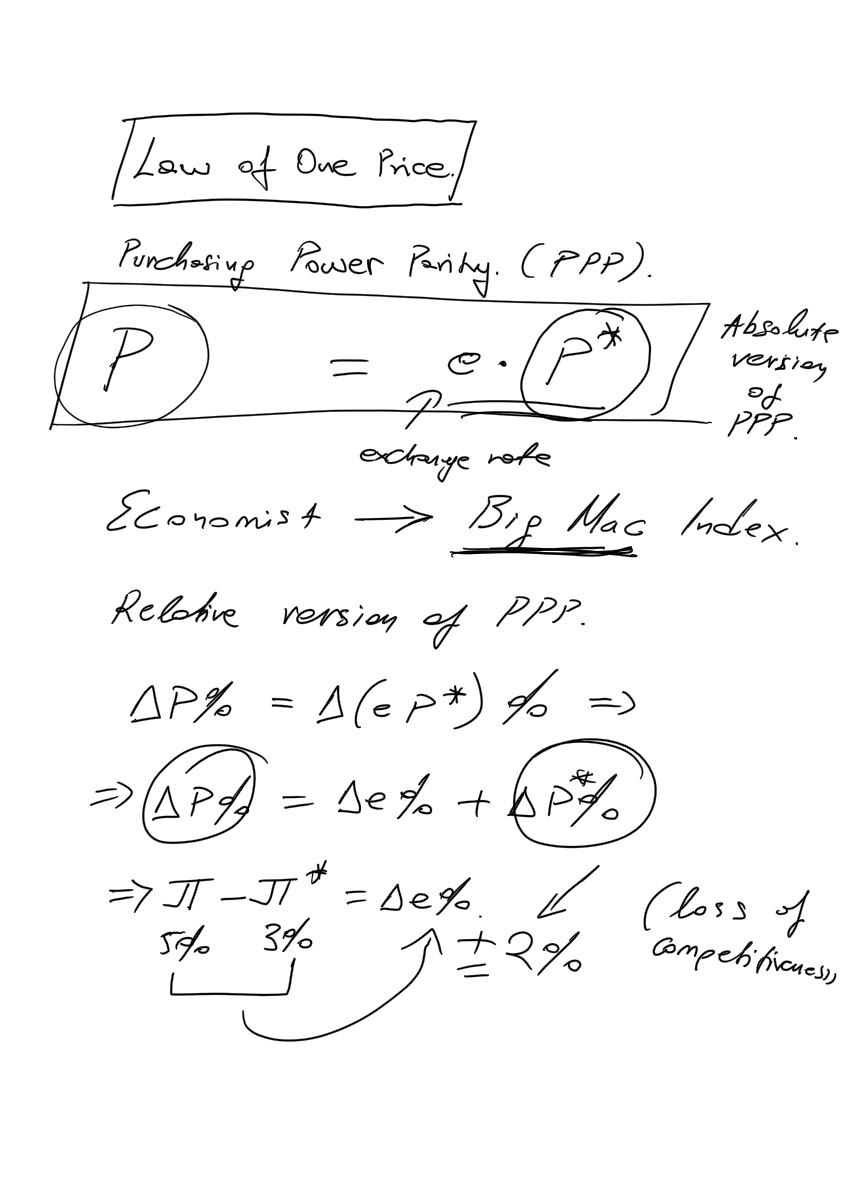 Law of One Price.
Purchasing Power Parity. (PPP).
P = e · P*
Absolute
version
of
PPP.
exchange rate
Economist → Big Mac Index.
Relative version of PPP.
ΔP% = Δ(e P*) % =>
=> ΔP% = Δe% + ΔP*%
=> π - π* = Δe%.
5% 3%
+ 2%
(loss of
competitiveness)